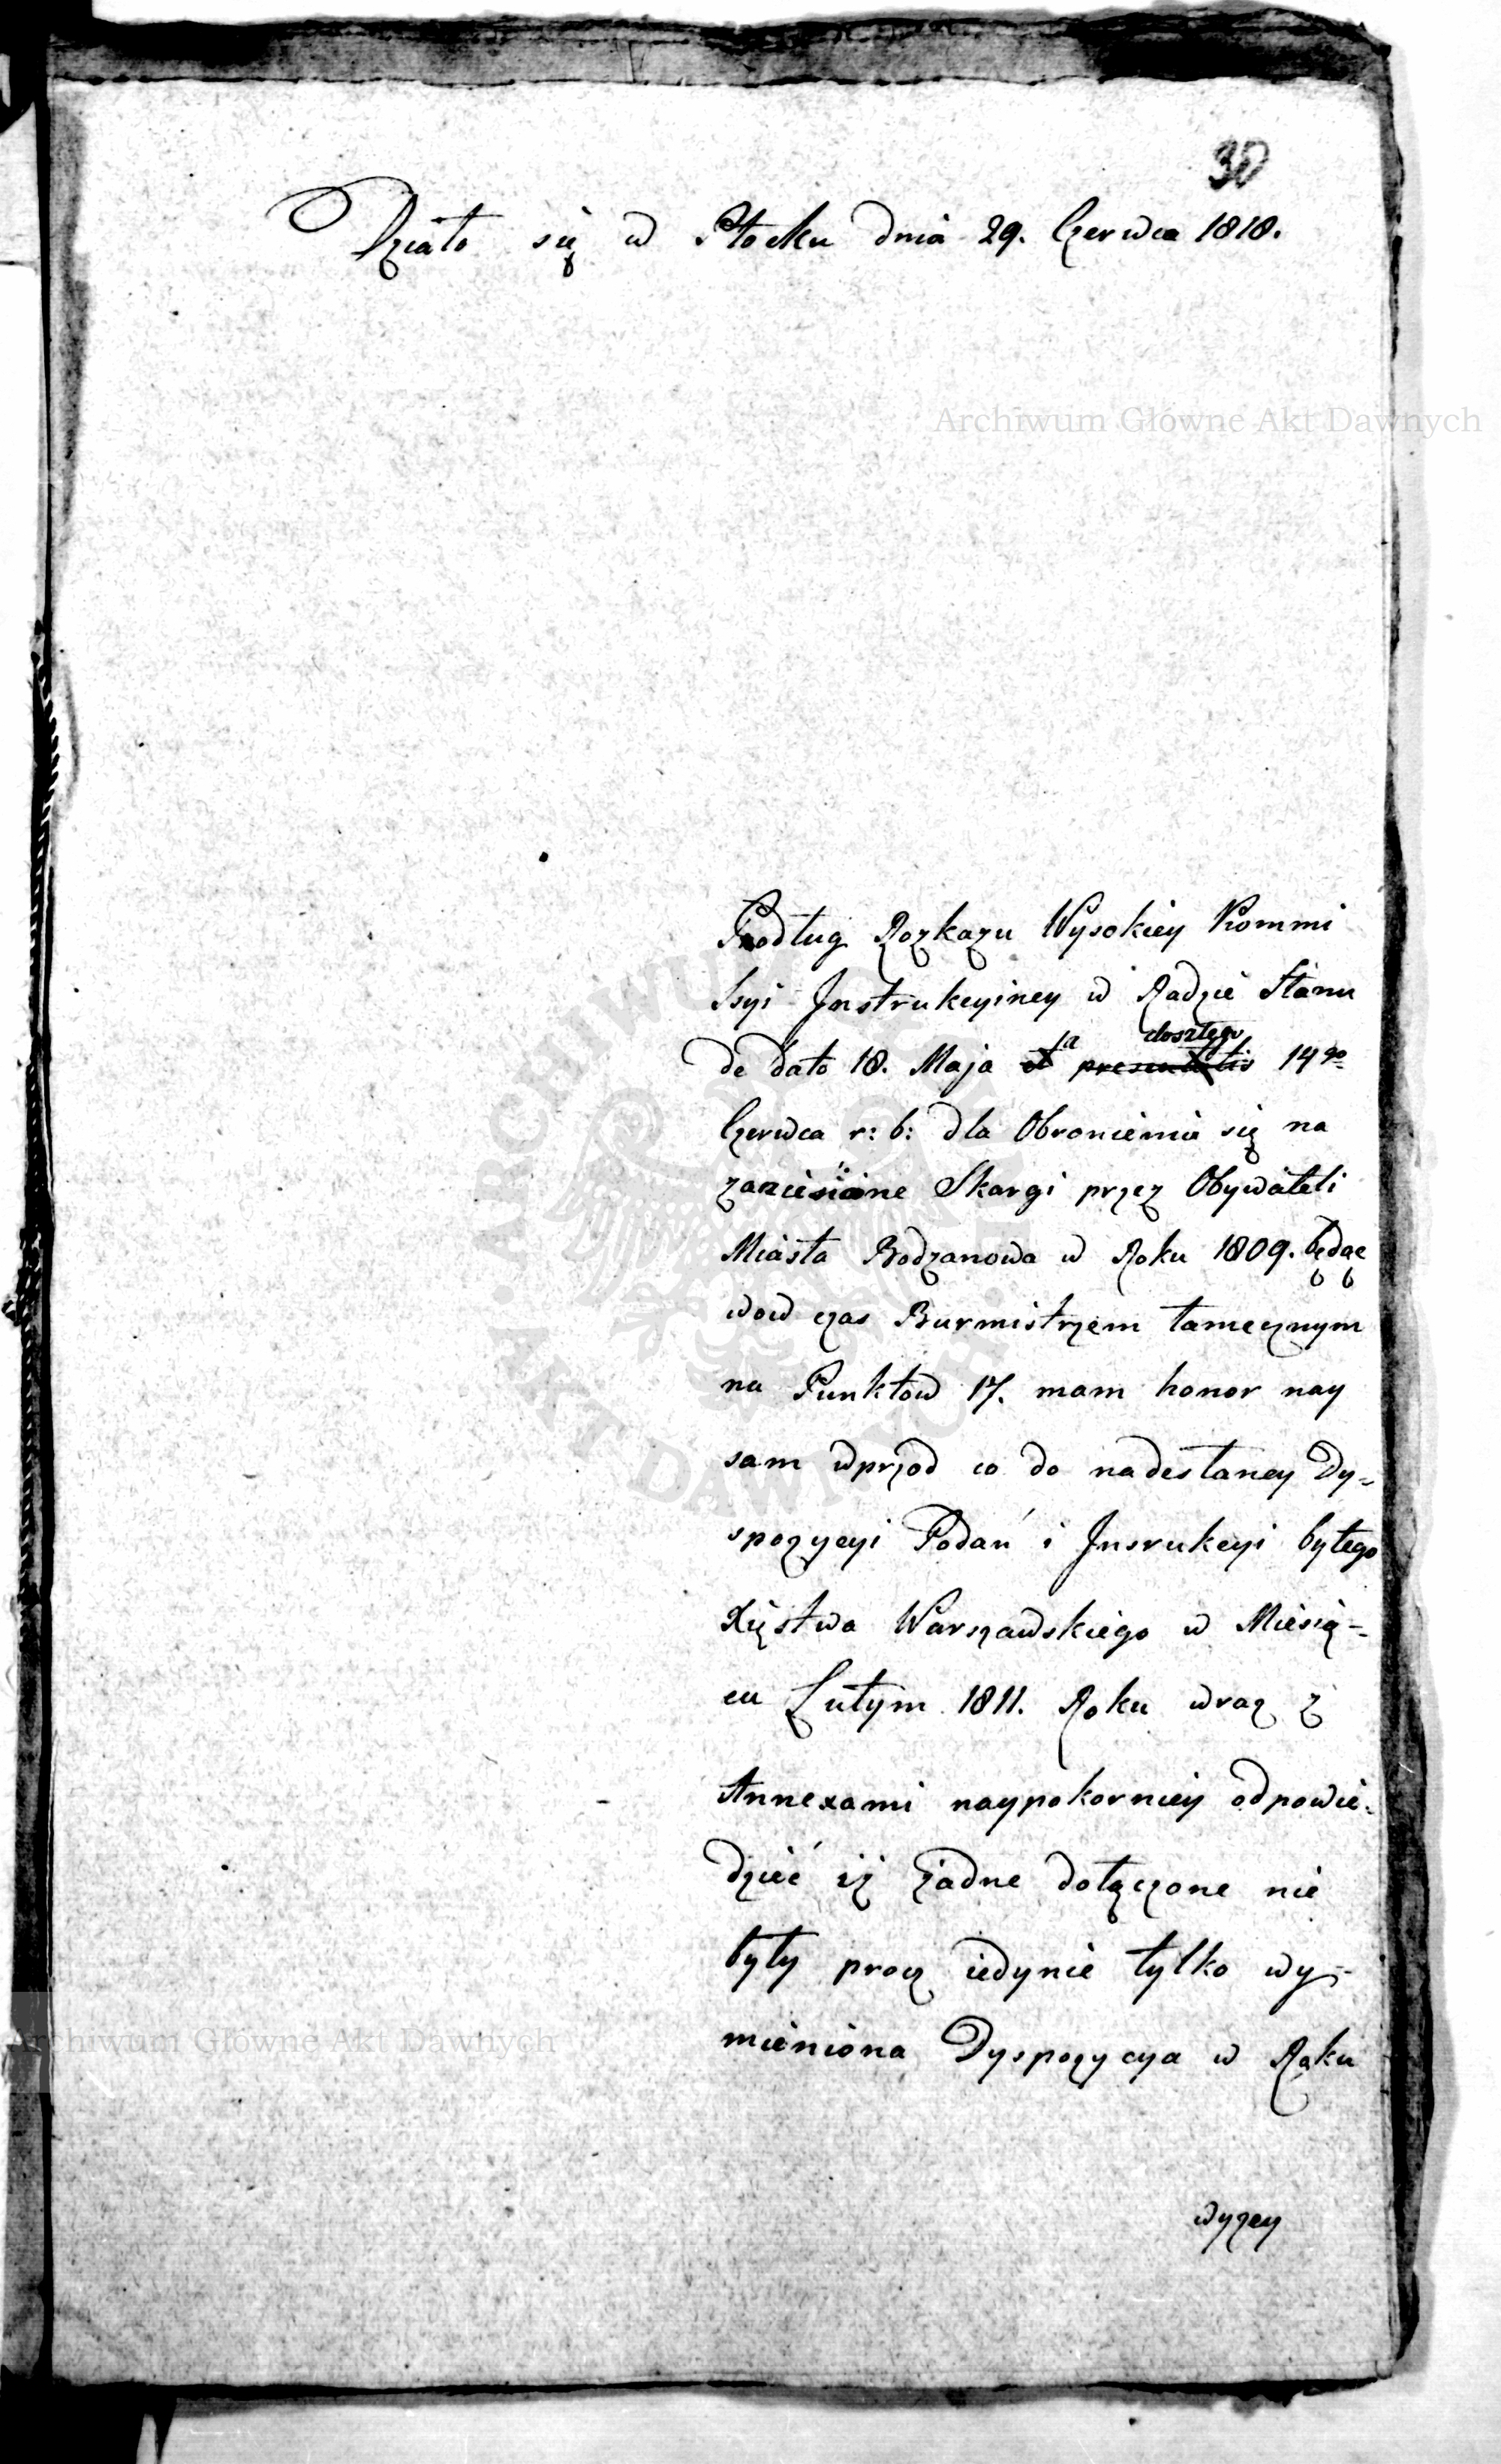 30
Działo się w Płocku dnia 29. Czerwca 1818.
Archiwum Główne Akt Dawnych
Podług Rozkazu Wysokiey Kommi
ssyi Instrukcyiney w Radzie Stanu
de dato 18. Maja et a presentatis doszłego 14go
Czerwca r: b: dla Obronienia się na
zaniesione Skargi przez Obywateli
Miasta Bodzanowa w Roku 1809. będąc
wow czas Burmistrzem tamecznym
na Punktow 17. mam honor nay
sam wprzod co do nadesłaney Dy=
spozycyi Podań i Insrukcyi byłego
Xięstwa Warszawskiego w Miesią=
cu Lutym 1811. Roku wraz z
Annexami naypokorniey odpowie=
dzieć iż żadne dołączone nie
były procz iedynie tylko wy=
mieniona Dyspozycya w Roku
Archiwum Główne Akt Dawnych
wyzey
ARCHIWUM
AKT DAWNYCH